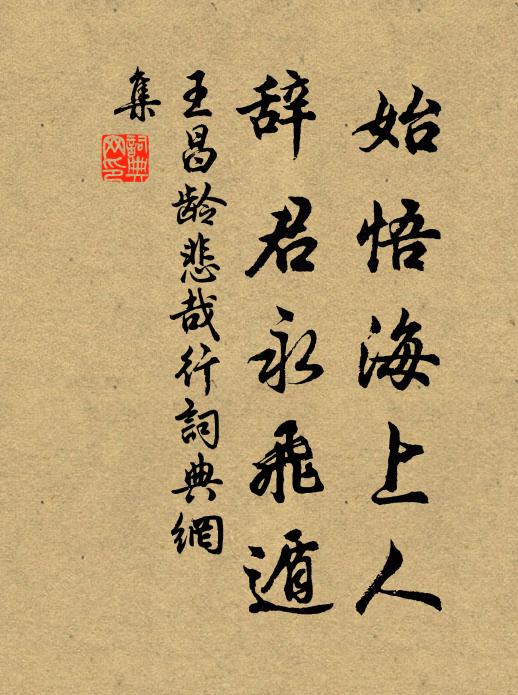 始悟海上人
辞君永飛遁
王昌龄悲哉行詞典網
集
詞典
网印